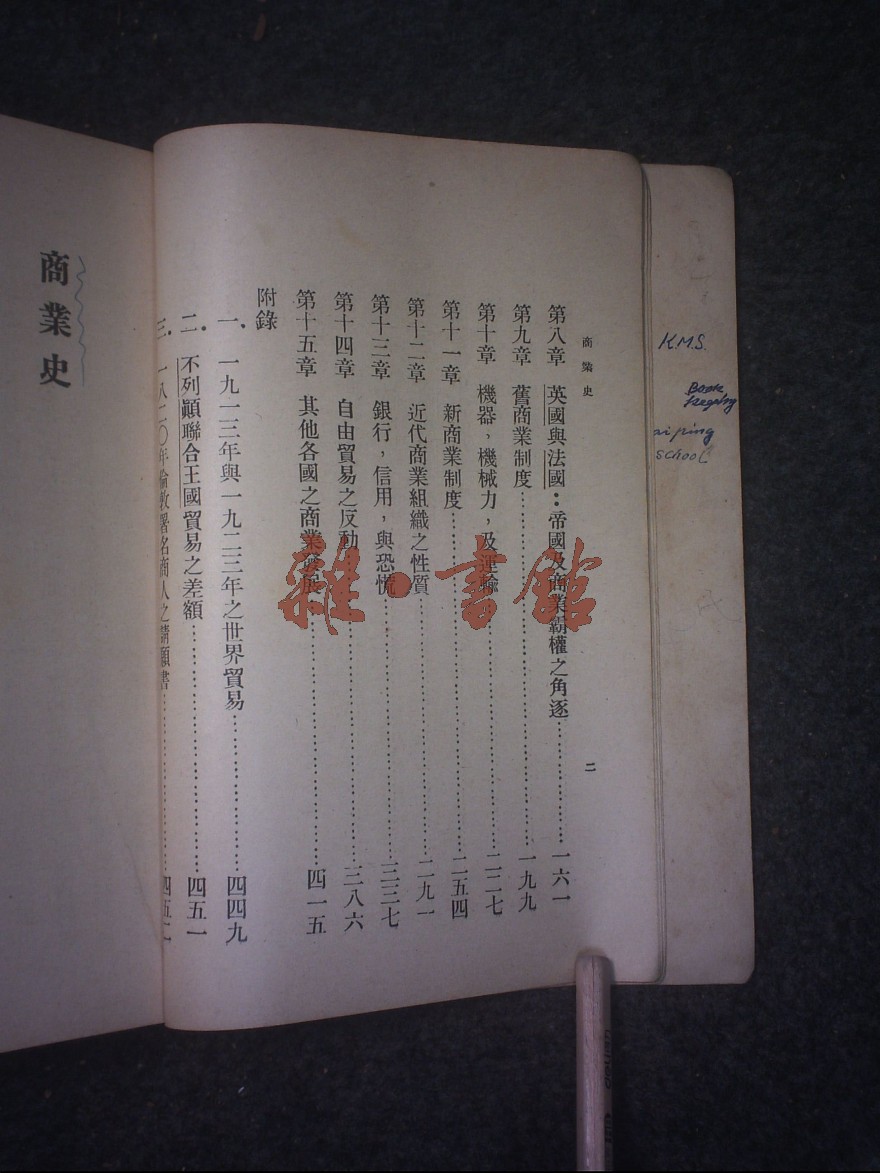 商業史
二
第八章 英國與法國：帝國及商業霸權之角逐……一六一
第九章 舊商業制度……一九九
第十章 機器，機械力，及運輸……二二七
第十一章 新商業制度……二五四
第十二章 近代商業組織之性質……二九一
第十三章 銀行，信用，與恐慌……三三七
第十四章 自由貿易之反動……三八六
第十五章 其他各國之商業發展……四一五
附錄
一．一九一三年與一九二三年之世界貿易……四四九
二．不列顛聯合王國貿易之差額……四五一
三．一八二〇年倫敦署名商人之請願書……四五二
商業史
K.M.S.
Book
aiping
school
雜·書館